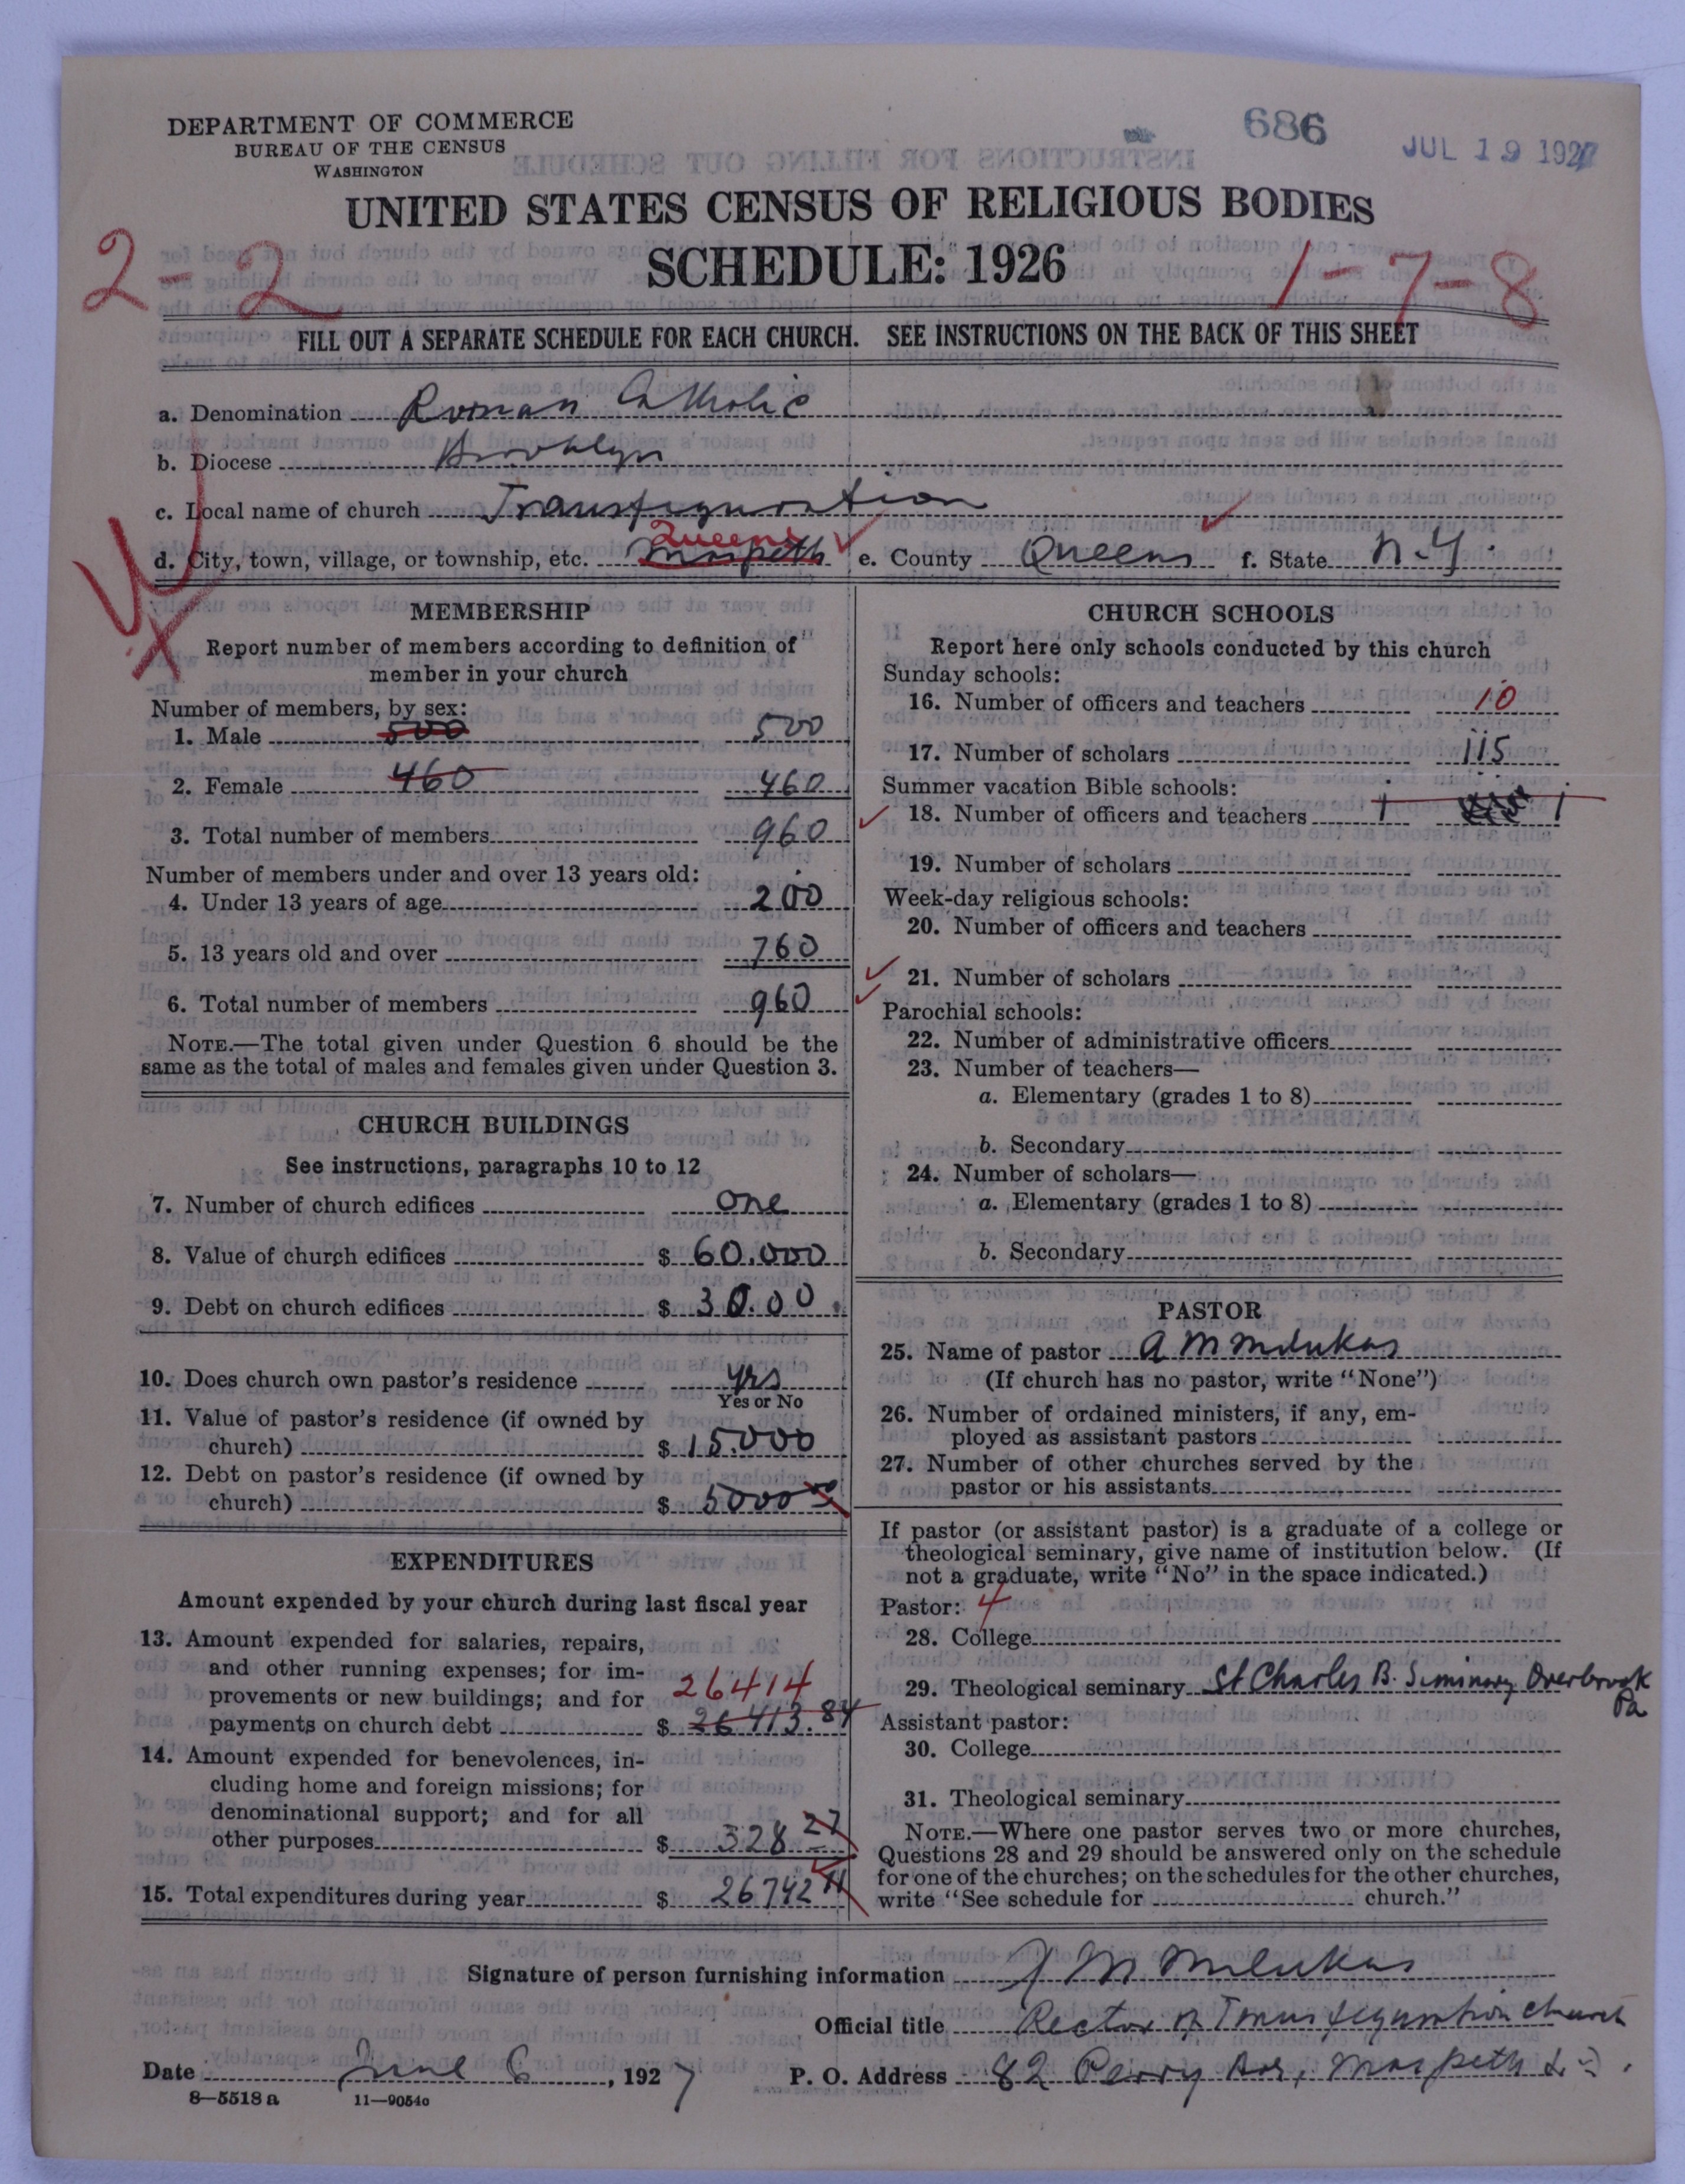 DEPARTMENT OF COMMERCE
BUREAU OF THE CENSUS
WASHINGTON
686
JUL 19 1927
UNITED STATES CENSUS OF RELIGIOUS BODIES
SCHEDULE: 1926
2-2
1-7-8
FILL OUT A SEPARATE SCHEDULE FOR EACH CHURCH. SEE INSTRUCTIONS ON THE BACK OF THIS SHEET
a. Denomination Roman Catholic
b. Diocese Brooklyn
c. Local name of church Transfiguration
Queens
d. City, town, village, or township, etc. Maspeth e. County Queens f. State N.Y.
MEMBERSHIP
Report number of members according to definition of
member in your church
Number of members, by sex:
1. Male 500 500
2. Female 460 460
3. Total number of members 960
Number of members under and over 13 years old:
4. Under 13 years of age 200
5. 13 years old and over 760
6. Total number of members 960
NOTE.—The total given under Question 6 should be the
same as the total of males and females given under Question 3.
CHURCH BUILDINGS
See instructions, paragraphs 10 to 12
7. Number of church edifices one
8. Value of church edifices $ 60.000
9. Debt on church edifices $ 30.00.
10. Does church own pastor's residence yes
Yes or No
11. Value of pastor's residence (if owned by
church) $ 15.000
12. Debt on pastor's residence (if owned by
church) $ 5000 00
EXPENDITURES
Amount expended by your church during last fiscal year
13. Amount expended for salaries, repairs,
and other running expenses; for im-
provements or new buildings; and for 26414
payments on church debt $ 26 413.84
14. Amount expended for benevolences, in-
cluding home and foreign missions; for
denominational support; and for all
other purposes $ 328 27
15. Total expenditures during year $ 26742 11
CHURCH SCHOOLS
Report here only schools conducted by this church
Sunday schools:
16. Number of officers and teachers 10
17. Number of scholars 115
Summer vacation Bible schools:
18. Number of officers and teachers 1 1
19. Number of scholars
Week-day religious schools:
20. Number of officers and teachers
21. Number of scholars
Parochial schools:
22. Number of administrative officers
23. Number of teachers—
a. Elementary (grades 1 to 8)
b. Secondary
24. Number of scholars—
a. Elementary (grades 1 to 8)
b. Secondary
PASTOR
25. Name of pastor A M Milukas
(If church has no pastor, write "None")
26. Number of ordained ministers, if any, em-
ployed as assistant pastors
27. Number of other churches served by the
pastor or his assistants
If pastor (or assistant pastor) is a graduate of a college or
theological seminary, give name of institution below. (If
not a graduate, write "No" in the space indicated.)
Pastor: 4
28. College
29. Theological seminary St Charles B. Seminary Overbrook
Pa
Assistant pastor:
30. College
31. Theological seminary
NOTE.—Where one pastor serves two or more churches,
Questions 28 and 29 should be answered only on the schedule
for one of the churches; on the schedules for the other churches,
write "See schedule for church."
Signature of person furnishing information A M Milukas
Official title Rector of Transfiguration church
Date June 6, 1927 P. O. Address 82 Perry Ave, Maspeth L.I.
8—5518 a 11—9054a